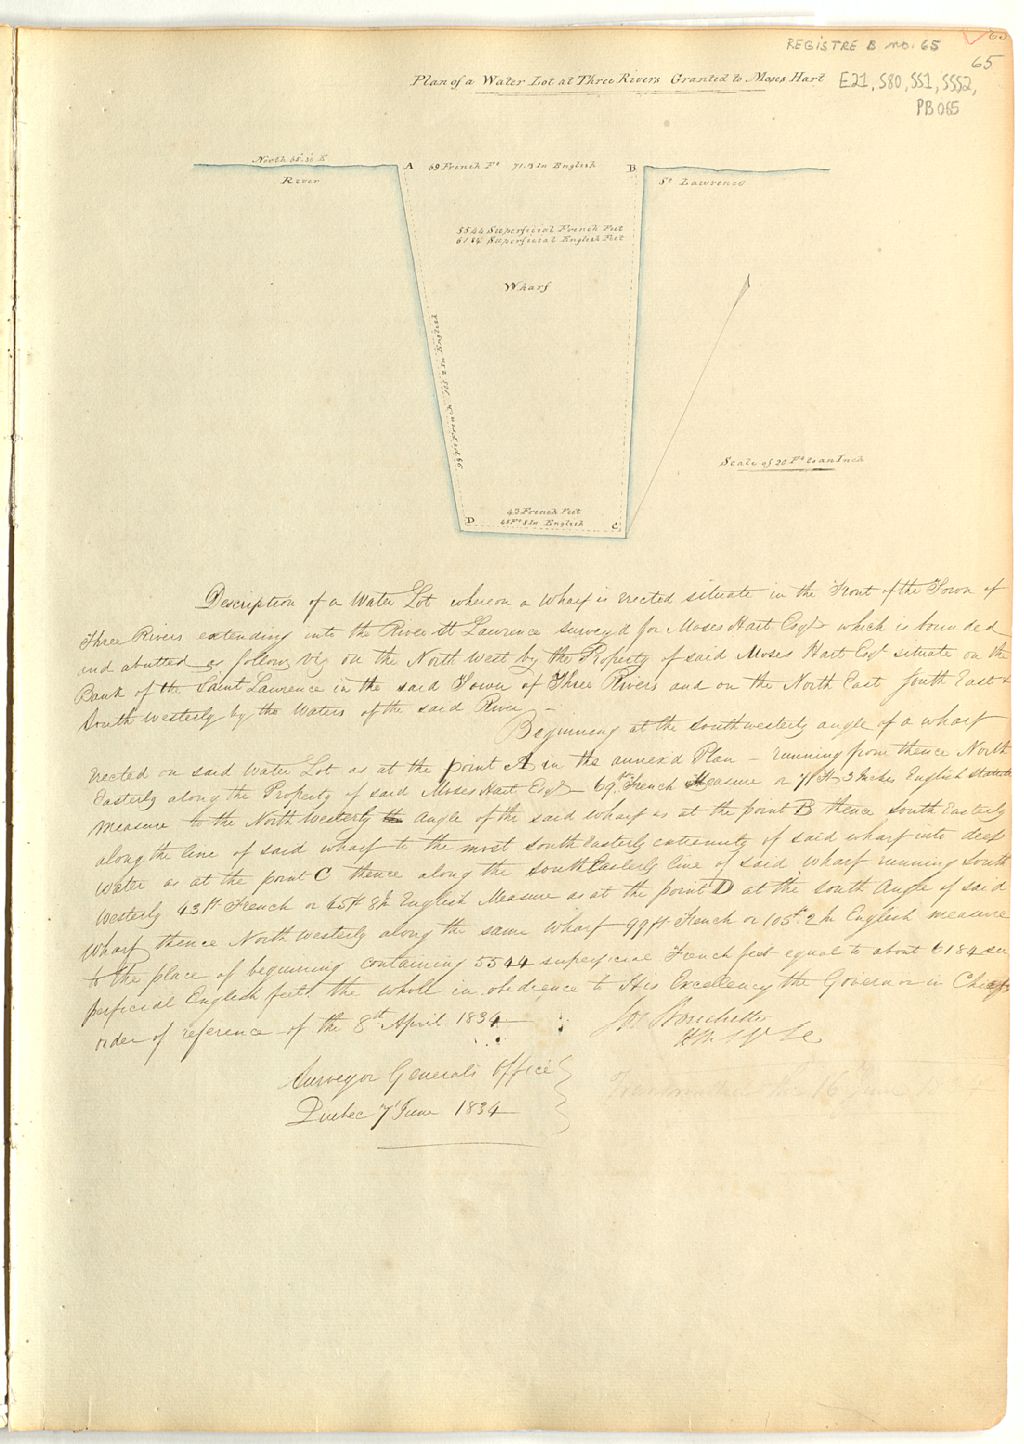 REGISTRE B no. 65
65
Plan of a Water Lot at Three Rivers Granted to Moses Hart
E21, S80, SS1, SSS2,
PB065
North 65°.30' E
River
A
69 French Ft 71.3 In English
B
St Lawrence
5544 Superficial French Feet
6184 Superficial English Feet
Wharf
99 Ft French 105 2 In English
Scale of 20 Ft to an Inch
D
43 French Feet
45 Ft 8 In English
C
Description of a Water Lot whereon a Wharf is erected situate in the Front of the Town of
Three Rivers extending into the River St Lawrence surveyd for Moses Hart Esqr which is bounded
and abutted as follows viz on the North West by the Property of said Moses Hart Esqr situate on the
Bank of the Saint Lawrence in the said Town of Three Rivers and on the North East South East &
South Westerly by the Waters of the said River –
Beginning at the Southwesterly angle of a wharf
erected on said Water Lot as at the point A in the annex'd Plan – running from thence North
Easterly along the Property of said Moses Hart Esqr – 69 ft French Measure or 71 ft – 3 Inches English statute
Measure to the North Westerly angle of the said wharf as at the point B thence South Easterly
along the line of said wharf to the most South Easterly extremity of said wharf into deep
Water as at the point C thence along the South Easterly line of said wharf running South
Westerly 43 ft French or 45 ft 8 In English Measure as at the point D at the South Angle of said
Wharf thence North Westerly along the same wharf 99 ft French or 105 ft. 2 In English measure
to the place of beginning containing 5544 superficial French feet equal to about 6184 su
perficial English feet the whole in obedience to His Excellency the Governor in Chief's
order of reference of the 8th April 1834
Jos Bouchette
Surveyor General's Office
Quebec 7 June 1834
16 June